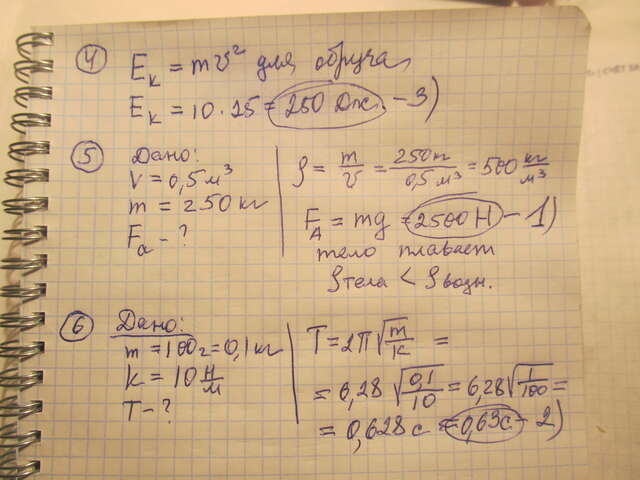 ④ Eₖ = mv² для обруча
Eₖ = 10 · 25 = 250 Дж - 3)
⑤ Дано:
V = 0,5 м³
m = 250 кг
Fₐ - ?
ρ = m/v = 250 кг/0,5 м³ = 500 кг/м³
F_A = mg = 2500 Н - 1)
тело плавает
ρ тела < ρ воды.
⑥ Дано:
m = 100 г = 0,1 кг
k = 10 Н/м
T - ?
T = 2π √(m/k) =
= 6,28 √(0,1/10) = 6,28 √(1/100) =
= 0,628 с ≈ 0,63 с - 2)